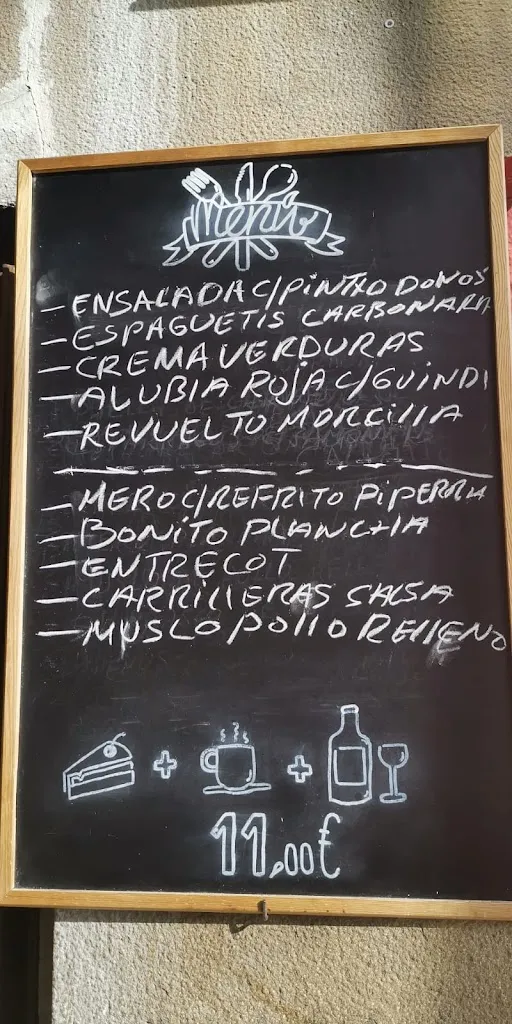 Menú
- ENSALADA C/PINTXO DONOS
- ESPAGUETIS CARBONARA
- CREMA VERDURAS
- ALUBIA ROJA C/GUINDI
- REVUELTO MORCILLA
- MERO C/REFRITO PIPERRA
- BONITO PLANCHA
- ENTRECOT
- CARRILLERAS SALSA
- MUSLO POLLO RELLENO
+ +
11,00€